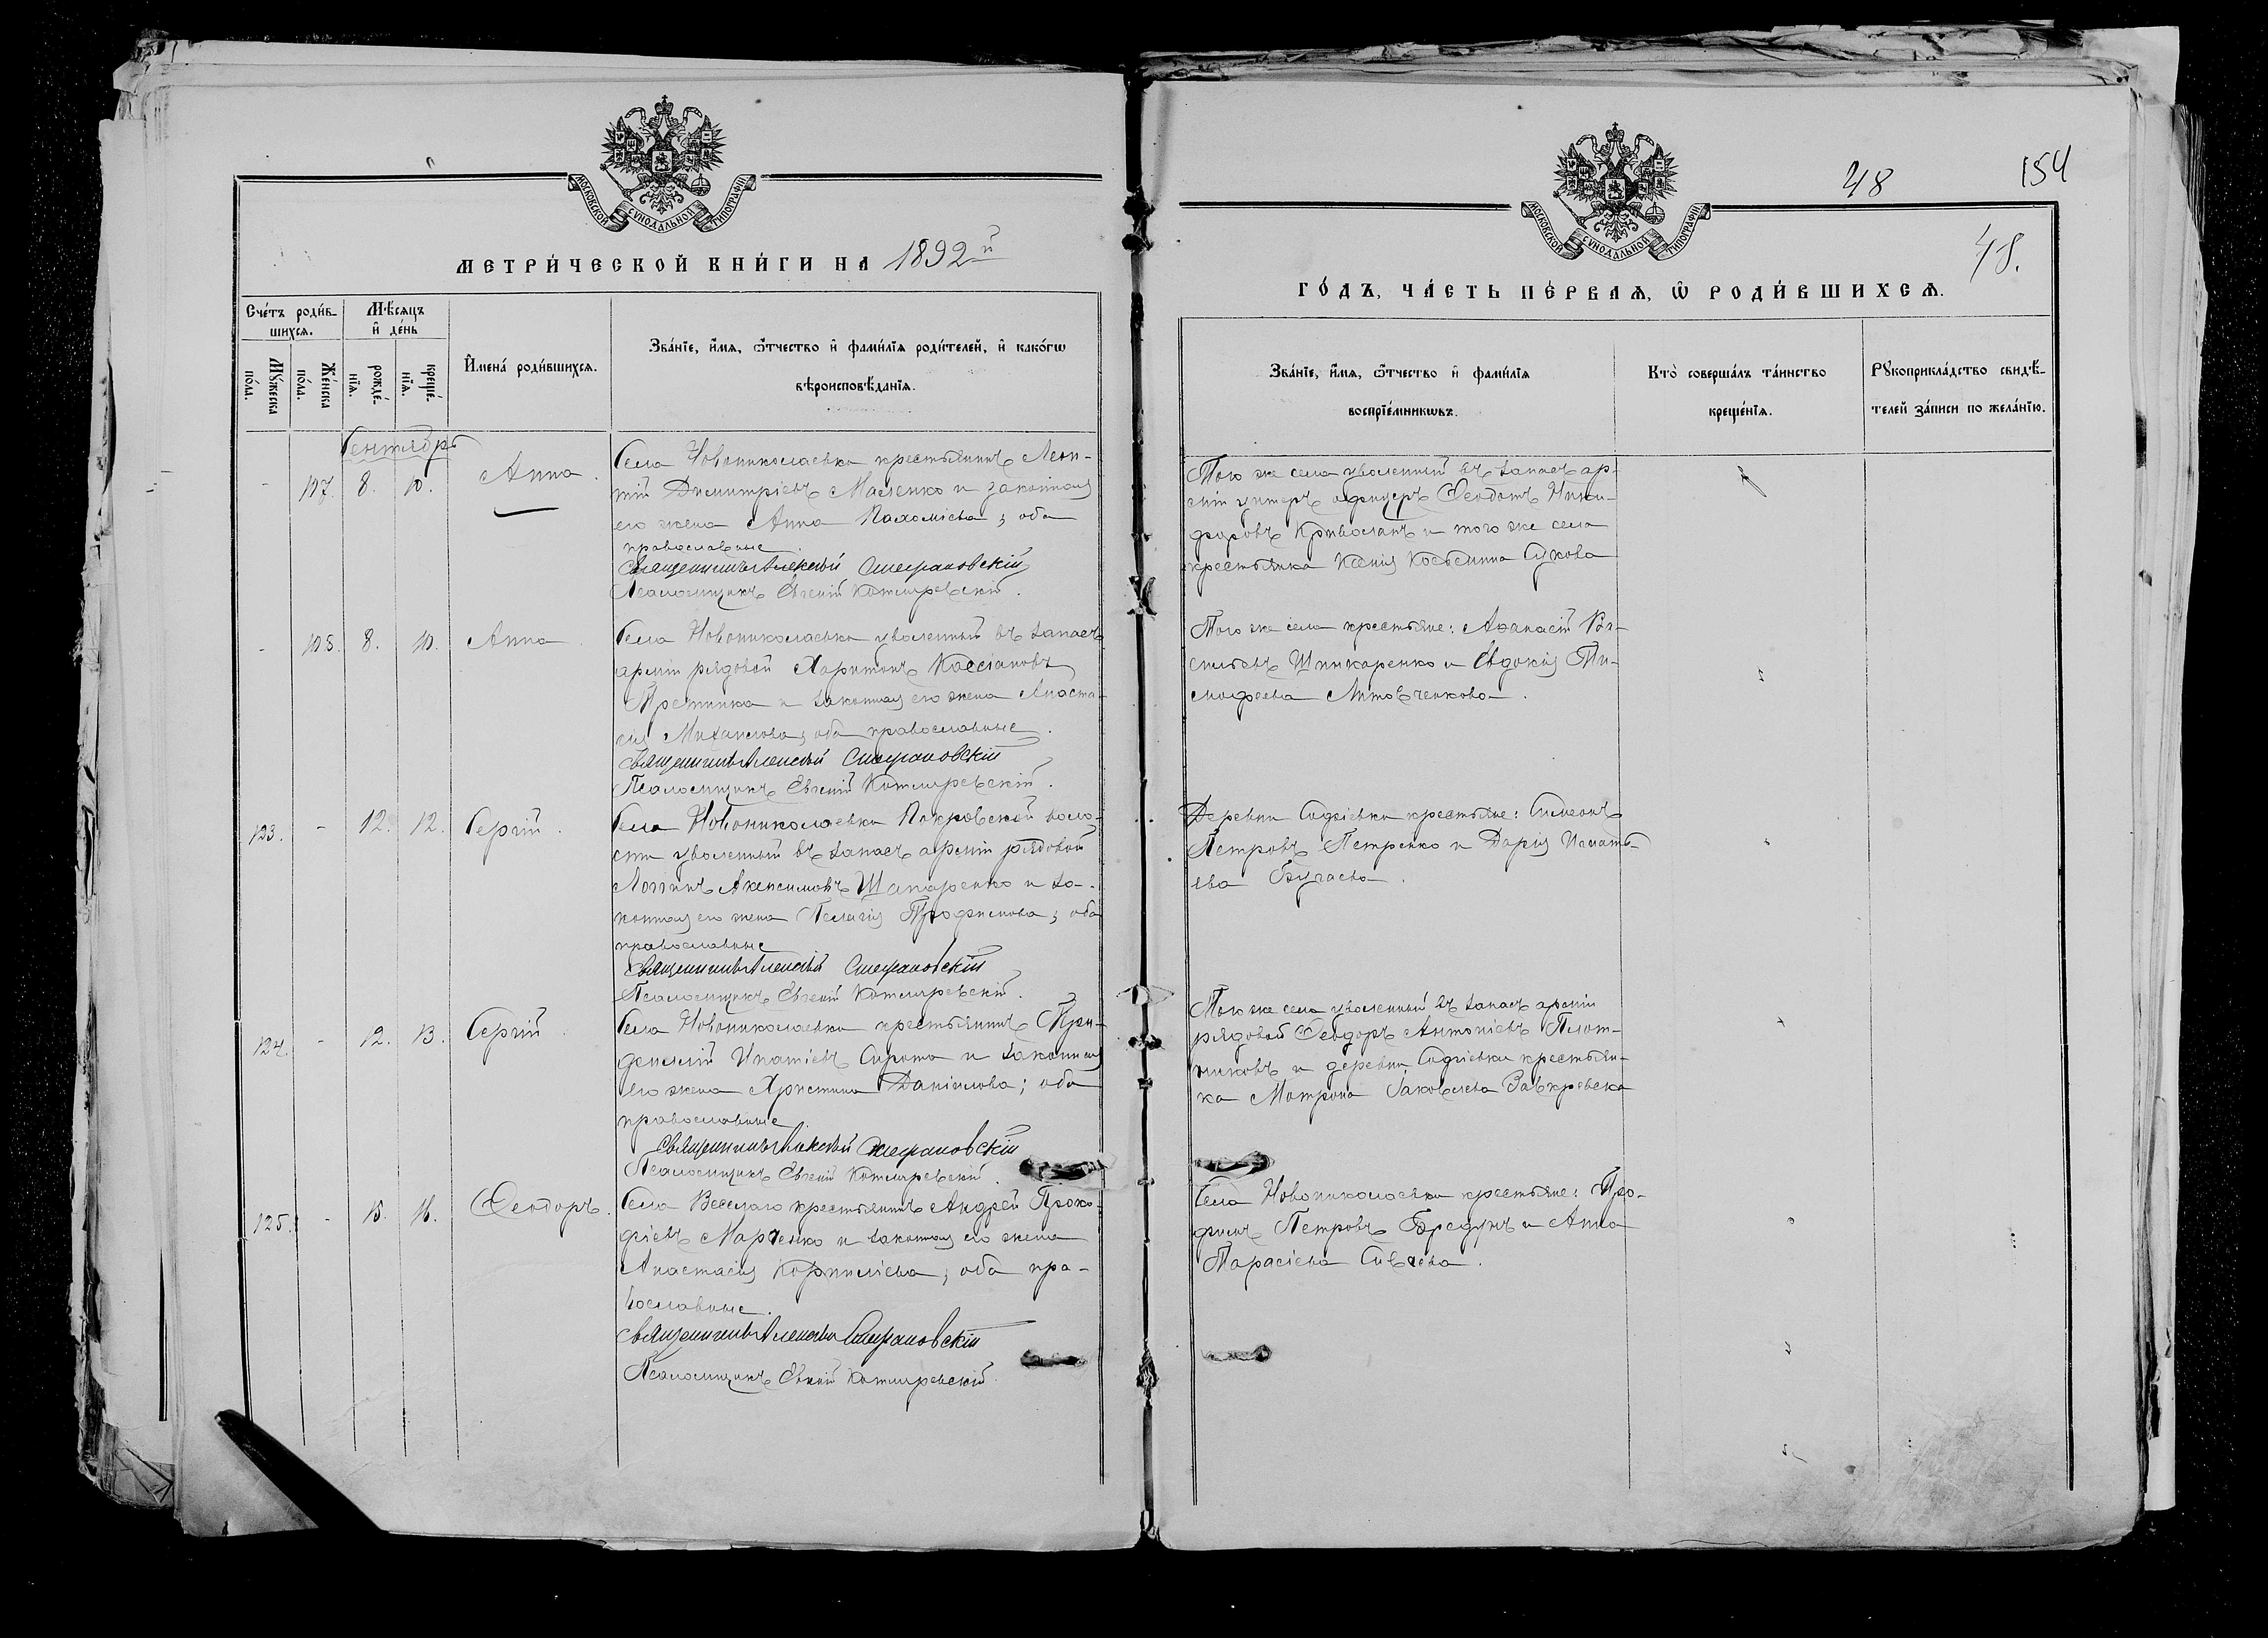 МОСКОВСКОЙ СѴНОДАЛЬНОЙ ТИПОГРАФІИ
МЕТРИ́ЧЕСКОЙ КНИ́ГИ НА 1892й
Сче́тъ роди́в-
шихсѧ.
Мѣ́сѧцъ
и҆ де́нь
Мꙋ́жеска
по́ла.
Же́нска
по́ла.
рожде́-
нїѧ.
креще́-
нїѧ.
И҆мена̀ роди́вшихсѧ.
Зва́нїе, и҆́мѧ, ѻ҆́тчество и҆ фами́лїѧ роди́телей, и҆ како́гѡ
вѣроисповѣ́данїѧ.
Сентябрь
- 107. 8. 10. Анна.
Села Новониколаевки крестьянинъ Леон-
тій Димитріевъ Масленко и законная
его жена Анна Пахоміева; оба
православные.
Священникъ Алексій Стефановскій
Псаломщикъ Евгеній Котляревскій.
- 108. 8. 10. Анна.
Села Новониколаевки уволенный въ запасъ
арміи рядовой Харитонъ Кассіановъ
и законная его жена Анаста-
сія Михаилова, оба православные.
Священникъ Алексій Стефановскій
Псаломщикъ Евгеній Котляревскій.
123. - 12. 12. Сергій.
Села Новониколаевки Покровской воло-
сти уволенный въ запасъ арміи рядовой
Логинъ Шапаренко и за-
конная его жена Пелагія Трофимова; оба
православные
Священникъ Алексій Стефановскій
Псаломщикъ Евгеній Котляревскій.
124. - 12. 13. Сергій.
Села Новониколаевки крестьянинъ
Ипатіевъ Сирота и законная
его жена Христина Даніилова; оба
православные.
Священникъ Алексій Стефановскій
Псаломщикъ Евгеній Котляревскій.
125. - 15. 16. Ѳеодоръ.
Села Веселаго крестьянинъ Андрей Проко-
фіевъ Марченко и законная его жена
Анастасія Корниліева; оба пра-
вославные.
Священникъ Алексій Стефановскій
Псаломщикъ Евгеній Котляревскій.
48 154
МОСКОВСКОЙ СѴНОДАЛЬНОЙ ТИПОГРАФІИ
48.
ГО́ДЪ, ЧА́СТЬ ПЕ́РВАѦ, Ѡ҆ РОДИ́ВШИХСѦ.
Зва́нїе, и҆́мѧ, ѻ҆́тчество и҆ фами́лїѧ
воспрїе́мникѡвъ.
Кто̀ соверша́лъ та́инство
креще́нїѧ.
Рꙋкоприкла́дство свидѣ́-
телей за́писи по жела́нїю.
Того же села уволенный въ запасъ ар-
міи унтеръ офицеръ Ѳеодотъ Ники-
форовъ Кривошап и того же села
крестьянка Ксенія Косьмина Сукова
Того же села крестьяне: Аѳанасій Ва-
сильевъ Шинкаренко и Евдокія Ти-
моѳеева Литовченкова.
Деревни Софіевки крестьяне: Симеонъ
Петровъ Петренко и Дарія Игнать-
ева Бугаева.
Того же села уволенный въ запасъ арміи
рядовой Ѳеодоръ Антоніевъ Плот-
никовъ и деревни Софіевки крестьян-
ка Матрона Іаковлева
Села Новониколаевки крестьяне: Тро-
фимъ Петровъ Бредунъ и Анна
Тарасіева Сиваева.